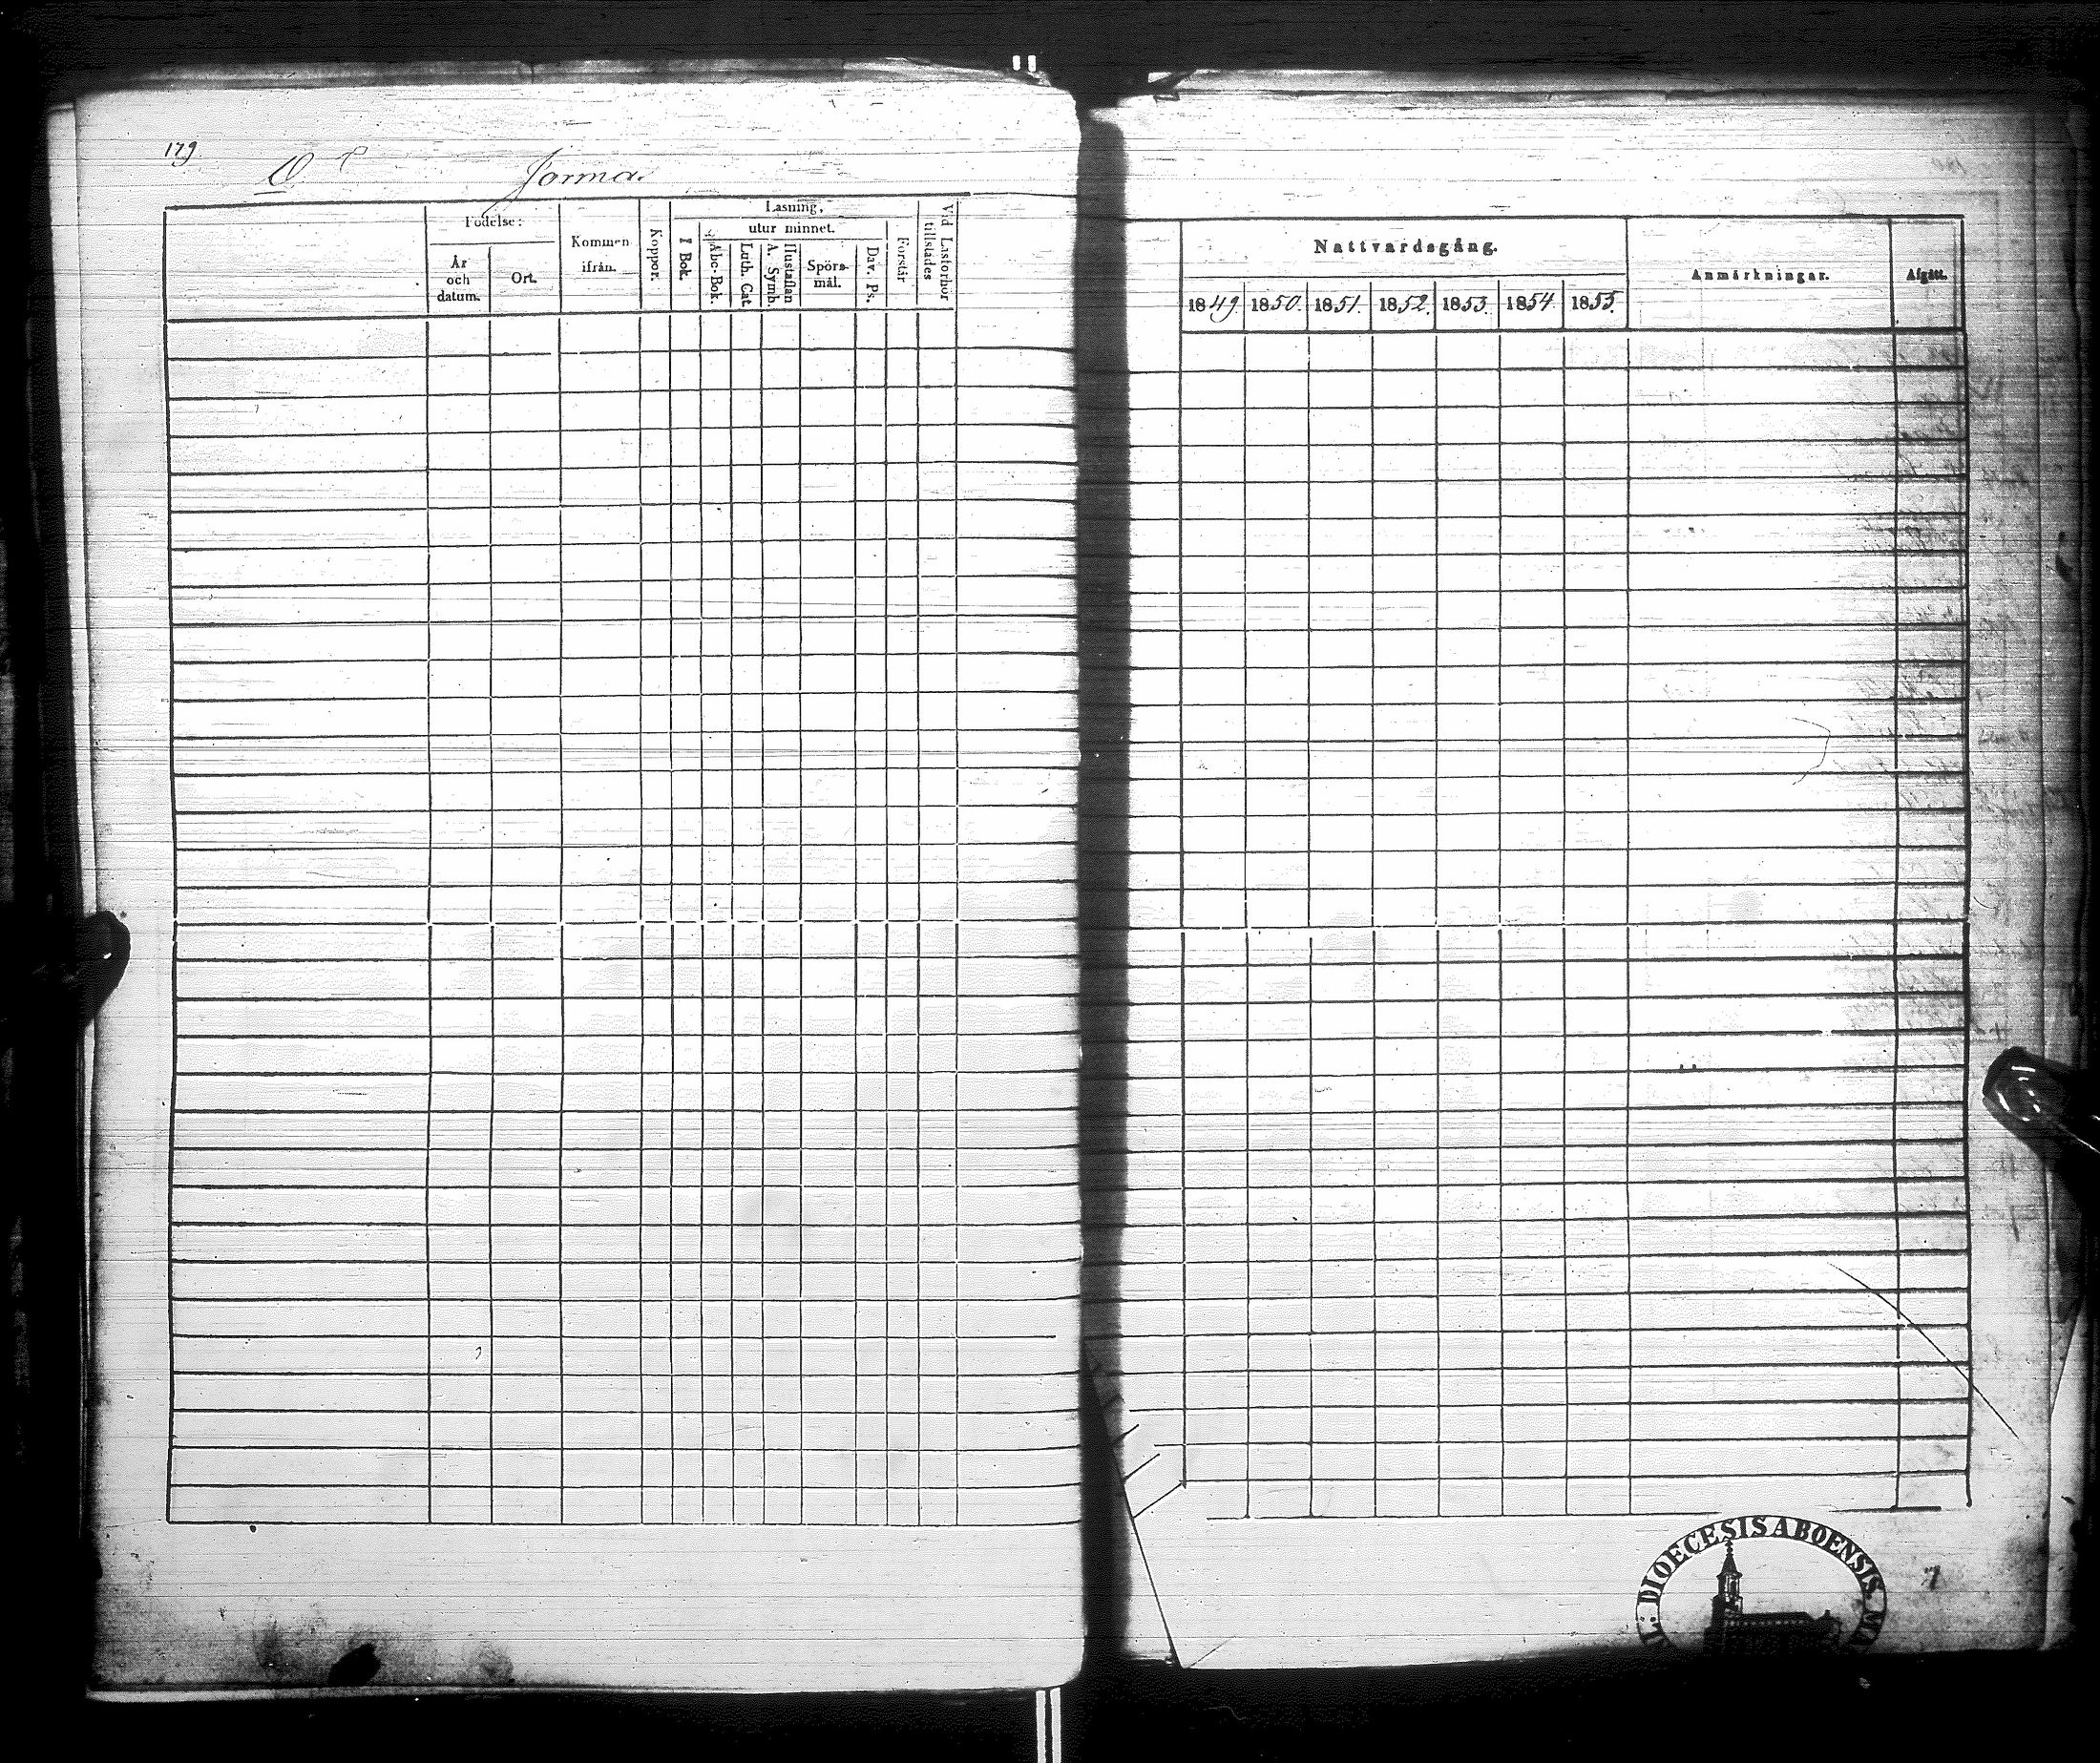 179
Jorma.
Födelse:
År
och
datum.
Ort.
Kommen
ifrån.
Koppor.
Läsning,
utur minnet.
I Bok.
Abc-Bok.
Luth. Cat.
A. Symb.
Hustaflan
Spörs-
mål.
Dav. Ps.
Förstår
Vid Läsförhör
tillstädes
Nattvardsgång.
1849.
1850.
1851.
1852.
1853.
1854.
1855.
Anmärkningar.
Afgått.
DIOECESIS ABOENSIS